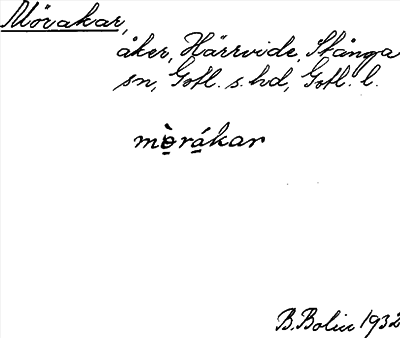 Mörakar,
åker, Härrvide, Stånga
sn, Gotl. s. hd, Gotl. l.
mò̱rá̱kar
B. Bolin 1932